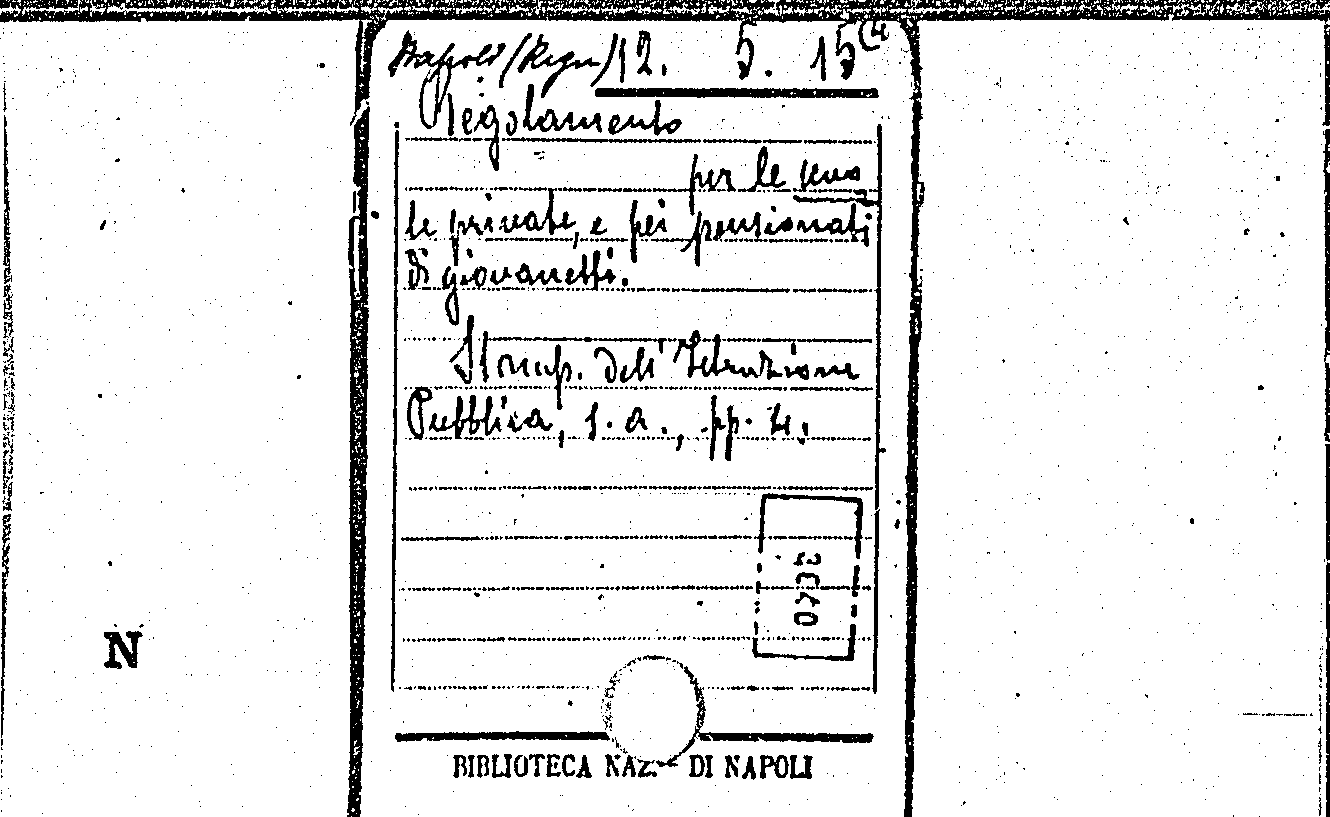 Napoli (Regn) 12. 5. 15(4
Regolamento
per le scuo
le private, e pei pensionati
di giovanetti.
Stamp. dell' Istruzione
Pubblica, s. a., pp. 4.
N
BIBLIOTECA NAZ. DI NAPOLI